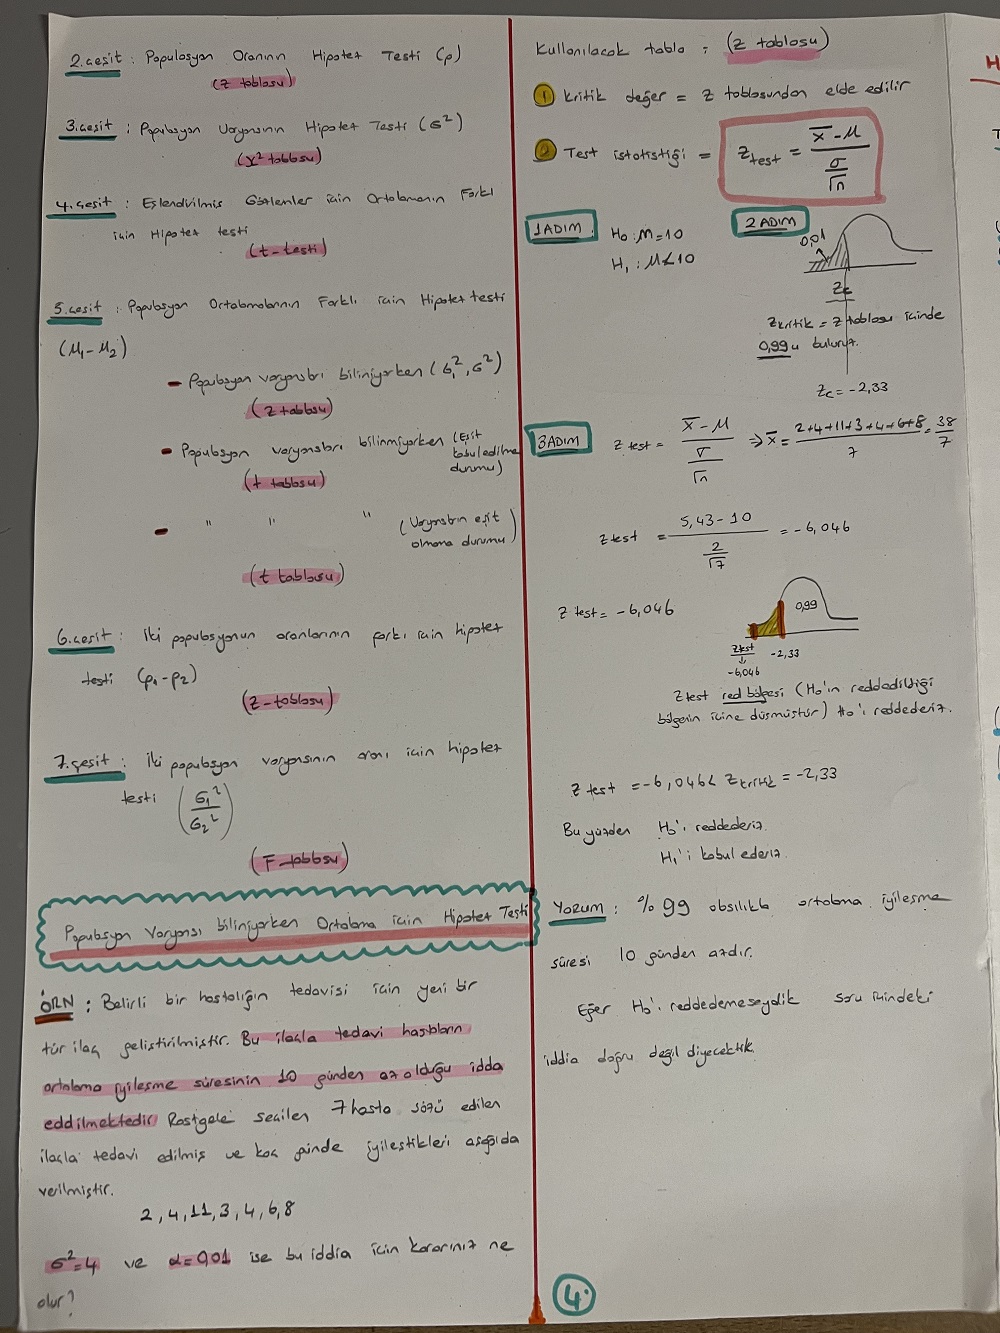 2.çeşit : Populasyon Oranının Hipotez Testi (p)
(z tablosu)
3.çeşit : Populasyon Varyansının Hipotez Testi (σ²)
(χ² tablosu)
4.çeşit : Eşlendirilmiş Gözlemler için Ortalamanın Farkı
için Hipotez testi
(t-testi)
5.çeşit : Populasyon Ortalamalarının Farklı için Hipotez testi
(μ₁-μ₂)
- Populasyon varyansları biliniyorken (σ₁², σ²)
(z tablosu)
- Populasyon varyansları bilinmiyorken (Eşit
kabul edilme
durumu)
(t tablosu)
- " " " (Varyansların eşit
olmama durumu)
(t tablosu)
6.çeşit : İki populasyonun oranlarının farkı için hipotez
testi (p₁-p₂)
(z-tablosu)
7.çeşit : İki populasyon varyansının oranı için hipotez
testi (σ₁²/σ₂²)
(F-tablosu)
Populasyon Varyansı biliniyorken Ortalama için Hipotez Testi
ÖRN : Belirli bir hastalığın tedavisi için yeni bir
tür ilaç geliştirilmiştir. Bu ilaçla tedavi hastaların
ortalama iyileşme süresinin 10 günden az olduğu idda
eddilmektedir. Rastgele seçilen 7 hasta sözü edilen
ilaçla tedavi edilmiş ve kaç günde iyileştikleri aşağıda
verilmiştir.
2, 4, 11, 3, 4, 6, 8
σ²=4 ve α=0,01 ise bu iddia için kararınız ne
olur?
Kullanılacak tablo : (z tablosu)
1 Kritik değer = z tablosundan elde edilir
2 Test istatistiği = z test = (x̄-μ)/(σ/√n)
1 ADIM H₀ : μ=10
H₁ : μ<10
2 ADIM
0,01
Zc
Zkritik = z tablosu içinde
0,99u bulunur.
Zc = -2,33
3 ADIM z test = (x̄-μ)/(σ/√n) ⇒ x̄ = (2+4+11+3+4+6+8)/7 = 38/7
z test = (5,43-10)/(2/√7) = -6,046
z test = -6,046
0,99
Ztest ↓ -6,046 -2,33
Ztest red bölgesi (H₀'ın reddedildiği
bölgenin içine düşmüştür) H₀'ı reddederiz.
Z test = -6,046 < Zkritik = -2,33
Bu yüzden H₀'ı reddederiz.
H₁'i kabul ederiz.
Yorum : %99 olasılıkla ortalama iyileşme
süresi 10 günden azdır.
Eğer H₀'ı reddedemeseydik soru içindeki
iddia doğru değil diyecektik.
4.